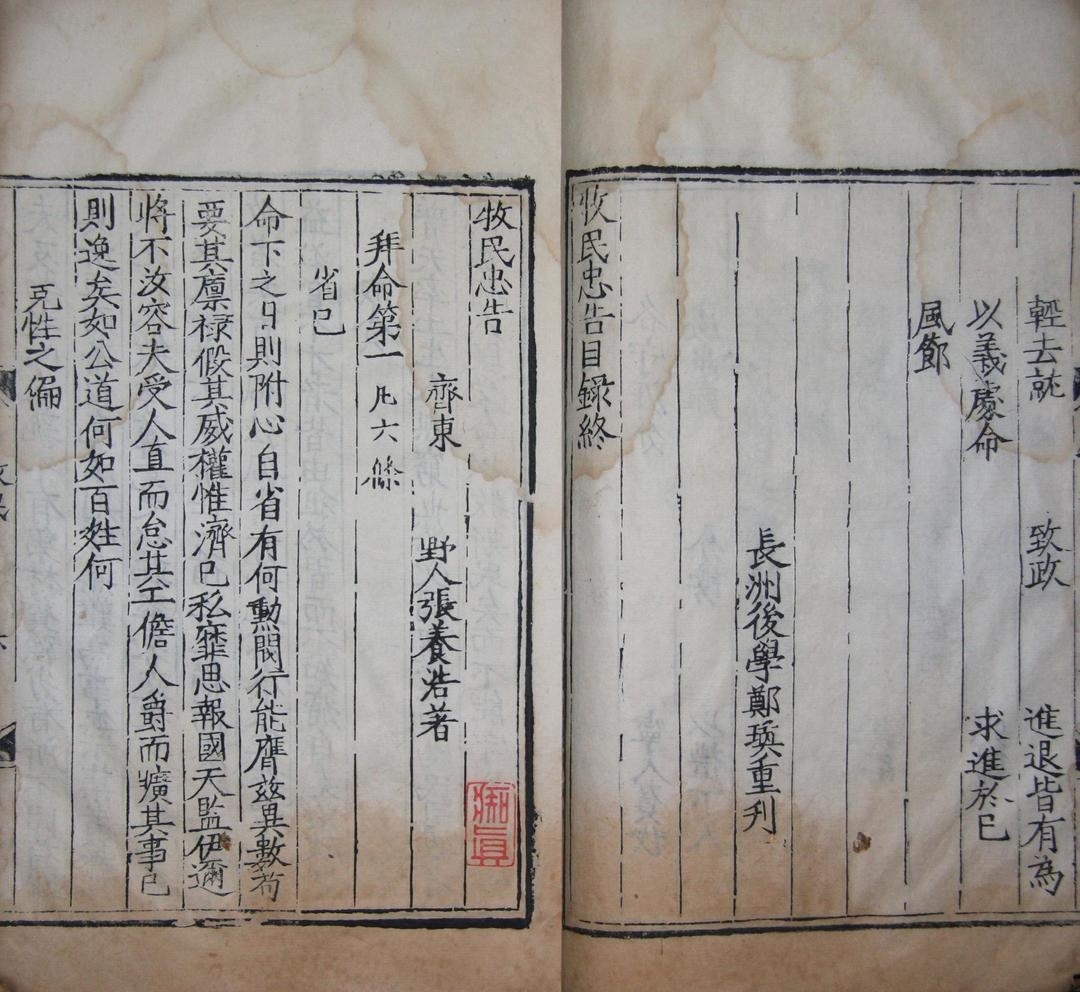 輕去就　致政　進退皆有為
以義處命　求進於已
風節
長洲後學鄭瓛重刊
牧民忠告目錄終
牧民忠告
齊東　野人張養浩著
拜命第一　凡六條
省已
命下之日則附心自省有何勲閥行能膺兹異數苟
要其廪禄假其威權惟濟已私靡思報國天監伊邇
將不汝容夫受人直而怠其工儋人爵而癏其事已
則逸矣如公道何如百姓何
克性之偏